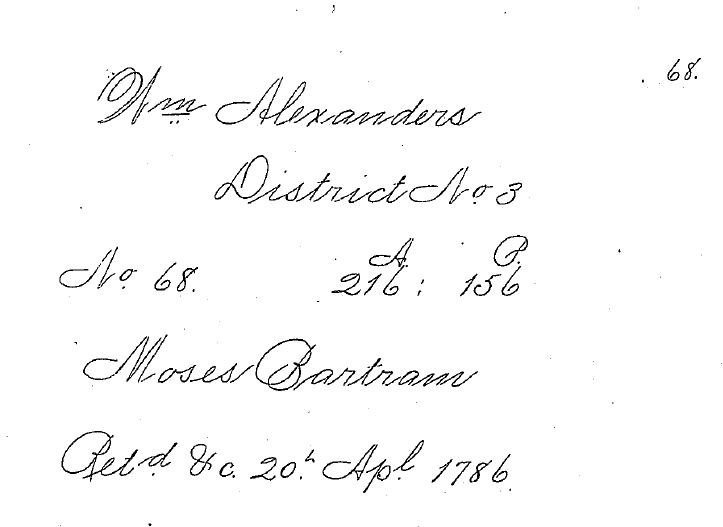 68.
Wm Alexanders
District No 3
A. P.
No 68. 216 : 156
Moses Bartram
Ret.d &c. 20.h Apl 1786.